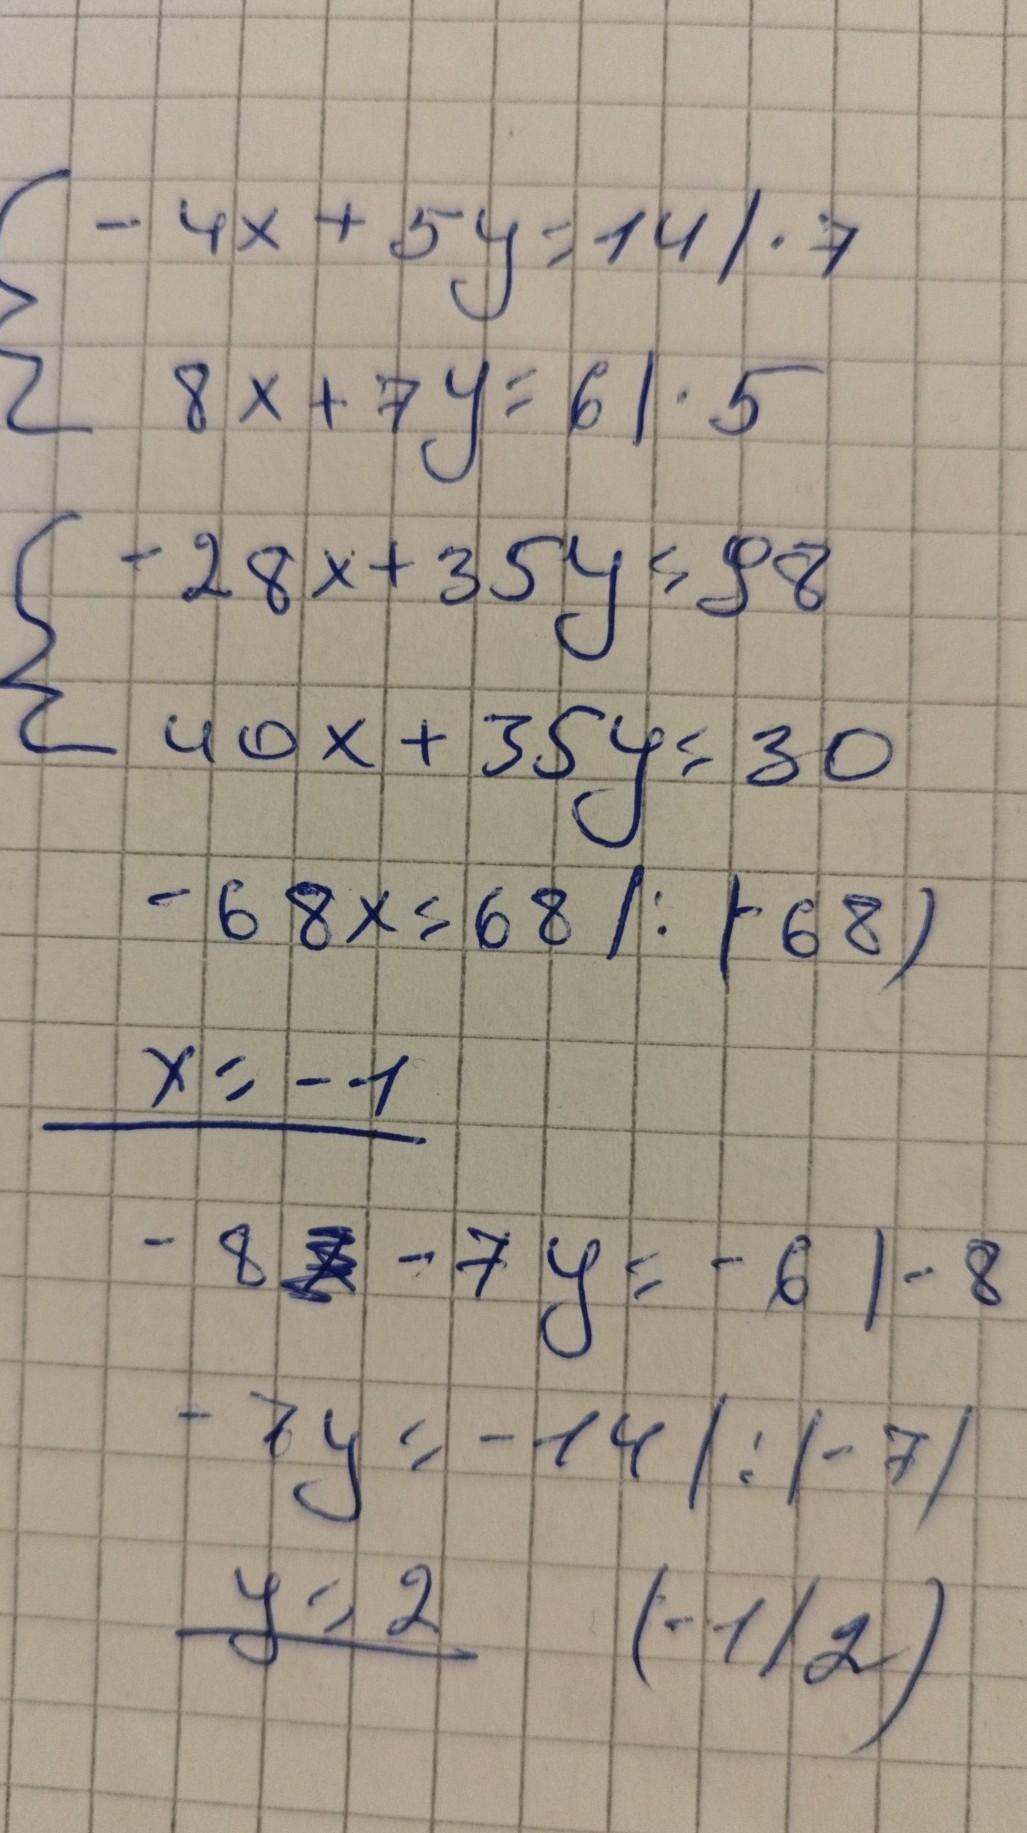 - 4x + 5y = 14 / · 7
8x + 7y = 6 | · 5
- 28x + 35y = 98
40x + 35y = 30
- 68x = 68 / : (- 68)
x = - 1
- 8 - 7y = - 6 | - 8
- 7y = - 14 / : /- 7/
y = 2 (- 1 / 2)